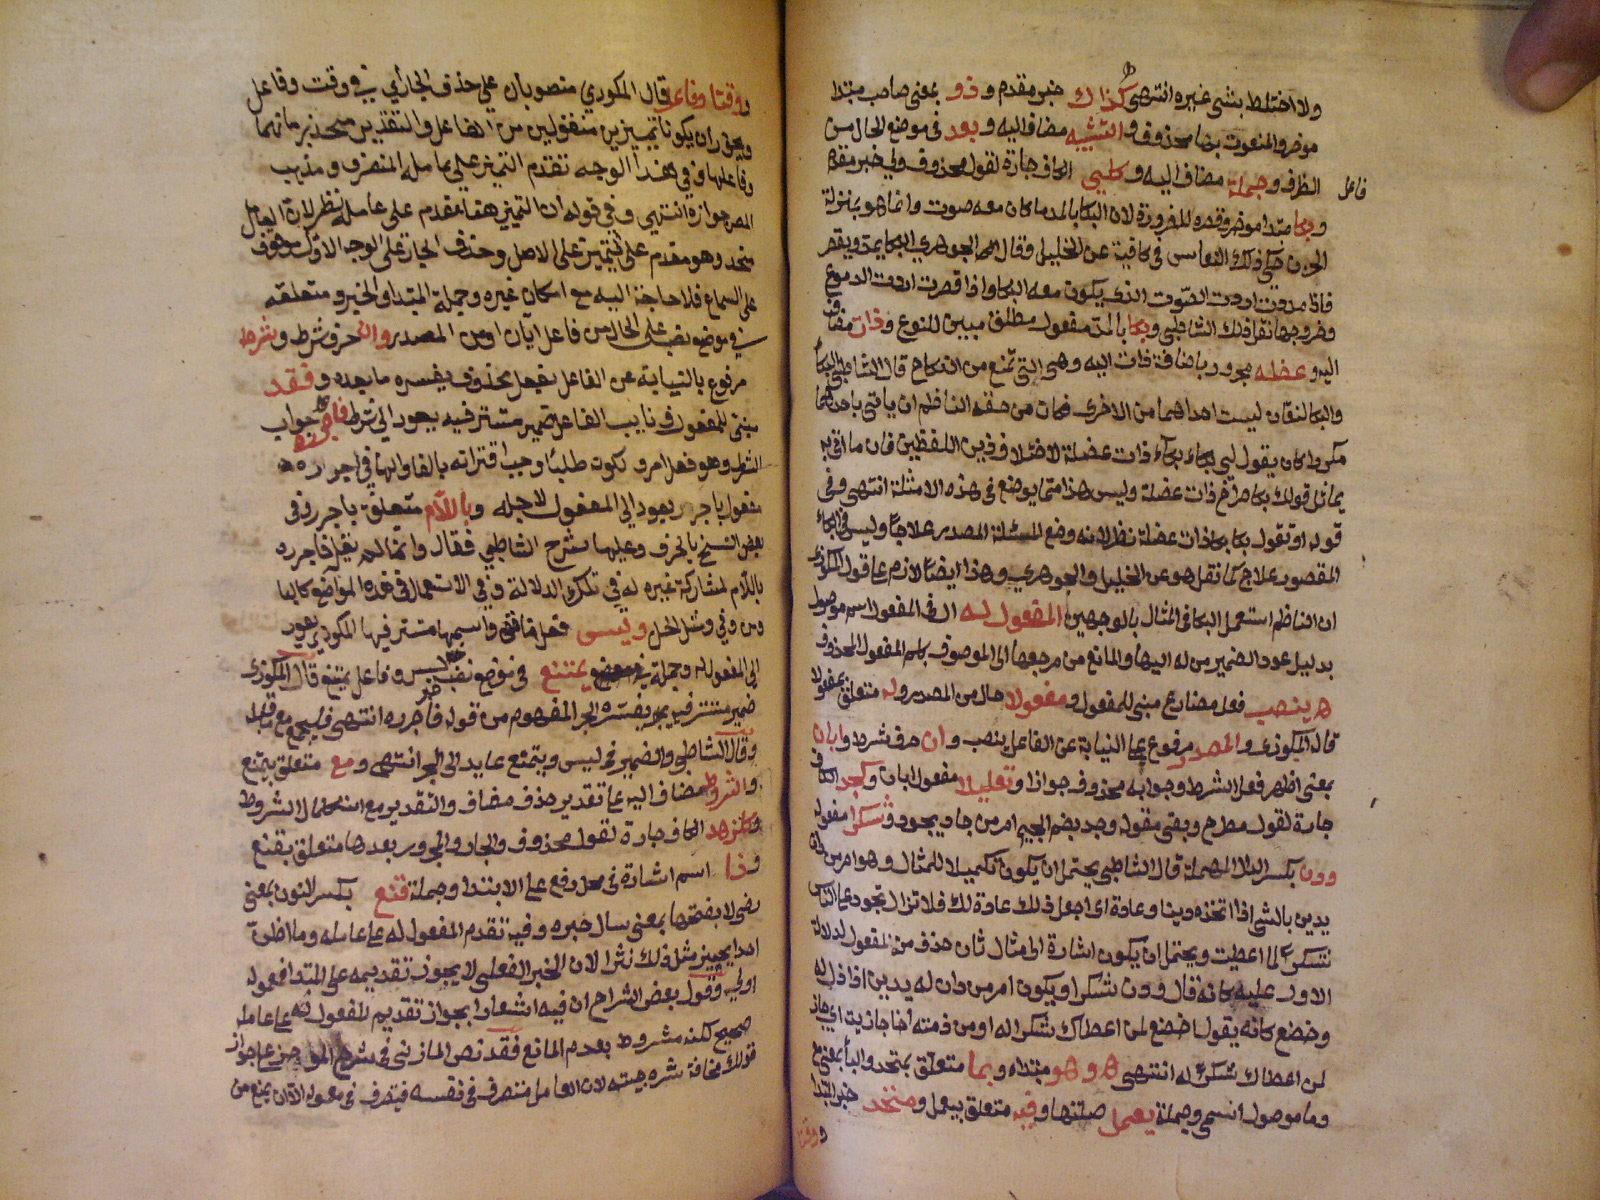 ولا اختلط بشيء غيره انتهى كذاك خبر مقدم وذو بمعنى صاحب مبتدا
موخر والمنعوت بها محذوف والتشبيه مضاف اليه وبعد في موضع الحال من
الظرف وجملة مضاف اليه وكلبكي الكاف جارة لقول محذوف ولي خبر مقدم
فاعل
وبكا مبتدا موخر وقصره للضرورة لان البكا بالمد ما كان معه صوت وانما هو بمنزلة
الحزن حكى ذلك النحاس في كافيته عن الخليل وقال الجوهري البكا يمد ويقصر
فاذا مددت اردت الصوت الذي يكون معه البكا واذا قصرت اردت الدموع
وخروجها نقل ذلك الشاطبي وبكا بالمد مفعول مطلق مبين للنوع وذات مضاف
اليه وعضله مجرور باضافة ذات اليه وهي التي تمنع من النكاح قال الشاطبي البكا
والبكا لغتان ليست احداهما من الاخرى فكان من حق الناظم ان ياتي باحداهما
مكررا كان يقول لي بكاء بكاء ذات عضلة لاختلاف ذين اللفظين فان ما اتى به
يماثل قولك بكا صراخ ذات عضلة وليس هذا مما يوضع في هذه الامثلة انتهى وفي
قوله او تقول بكا بكا ذات عضلة نظر لانه وضع المسئلة المصدر علاجا وليس في البكاء
المقصور علاج كما نقل هو عن الخليل والجوهري وهذا ايضا لازم على قول المكودي
ان الناظم استعمل البكا في المثال بالوجهين المفعول له ال في المفعول اسم موصول
بدليل عود الضمير من له اليها والمانع من مرجعها الى الموصوف المفعول المحذوف
ينصب فعل مضارع مبني للمفعول ومفعولا حال من المصدر وله متعلق بمفعولا
قاله المكودي والمصدر مرفوع على النيابة عن الفاعل بينصب وان حرف شرط وابان
بمعنى اظهر فعل الشرط وجوابه محذوف جوازا وتعليلا مفعول ابان وكجد الكاف
جارة لقول مطرح وبقي مقوله وجد بضم الجيم امر من جاد يجود وشكرا مفعول له
ودن بكسر الدال المهملة قال الشاطبي يحتمل ان يكون تكميلا للمثال وهو امر من دان
يدين بالشي اذا اتخذه دينا وعادة اي اجعل ذلك عادة لك فلا تزال تجود على الناس
شكرا لما اعطيت ويحتمل ان يكون اشارة الى مثال ثان حذف منه المفعول لدلالة
الاول عليه كانه قال ودن شكرا ويكون امر من دان له يدين اذا ذل له
وخضع كانه يقول اخضع لمن اعطاك شكرا له او من دنته اذا جازيته اي جاز
لمن اعطاك شكرا له انتهى وهو مبتداء وبما متعلق بمتحد والبا بمعنى مع
وما موصول اسمي وجملة يعمل صلتها وفيه متعلق بيعمل ومتحد خبر المبتدا
ووقتا
ووقتا وفاعلا قال المكودي منصوبان على حذف الجار اي في وقت وفاعل
ويجوز ان يكونا تمييزين منقولين من الفاعل والتقدير متحد زمانهما
وفاعلهما وفي هذا الوجه تقدم التمييز على عامله المتصرف ومذهب
المصر جوازه انتهى وفي قوله ان التمييز هنا مقدم على عامله نظر لان العامل
متحد وهو مقدم على التمييز على الاصل وحذف الجار على الوجه الاول موقوف
على السماع فلا حاجة اليه مع امكان غيره وجملة المبتدا والخبر ومتعلقه
في موضع نصب على الحال من فاعل ابان او من المصدر وان حرف شرط وشرط
مرفوع بالنيابة عن الفاعل بفعل محذوف يفسره ما بعده وفقد
مبني للمفعول ونايب الفاعل ضمير مستتر فيه يعود الى شرط فاجرره جواب
الشرط وهو فعل امر ولكون طلبيا وجب اقترانه بالفا والها في اجرره
مفعول باجرر يعود الى المفعول لاجله وباللام متعلق باجرر وفي
بعض النسخ بالحرف وعليها شرح الشاطبي فقال وانما لم يقل فاجرره
باللام لمشاركة غيره له في تلك الدلالة وفي الاستعمال في هذه المواضع كالبا
ومن وفي ومثل الحل وليس فعل ناقص واسمها مستتر فيها المكودي يعود
الى المفعول له وجملة يمتنع في موضع نصب خبر ليس وفاعل يمتنع قال المكودي
ضمير مستتر فيه يفسره الجر المفهوم من قوله فاجرره انتهى
وقال الشاطبي والضمير في ليس ويمتنع عايد الى الجر انتهى ومع متعلق بيمتنع
والشروط مضاف اليه على تقدير حذف مضاف والتقدير مع استكمال الشروط
وكلزهد الكاف جارة لقول محذوف والجار والمجرور بعدها متعلق بقنع
وذا اسم اشارة في محل رفع على الابتدا وجملة قنع بكسر النون بمعنى
رضي لا بفتحها بمعنى سال خبره وفيه تقدم المفعول له على عامله وما اظن
احدا يجيز مثل ذلك نثرا لان الخبر الفعلي لا يجوز تقديمه على المبتدا فمعموله
اولى وقول بعض الشراح ان فيه اشعارا بجواز تقديم المفعول له على عامله
صحيح لكنه مشروط بعدم المانع فقد نص المازني في شرح الموجز على جواز
قولك مخافة شره جيته لان العامل متصرف في نفسه فيتصرف في معموله الا ان يمنع من